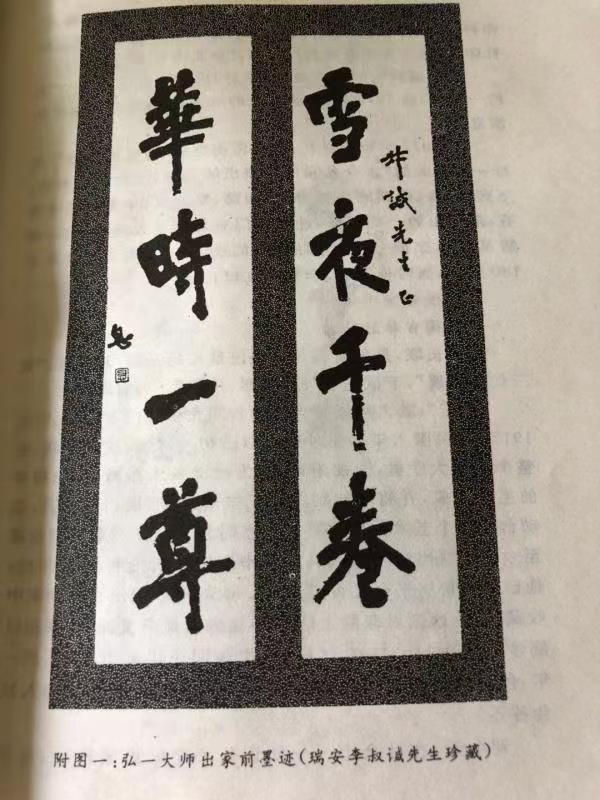 雪夜千卷
叔誠先生正
華時一尊
息
附图一:弘一大师出家前墨迹(瑞安李叔诚先生珍藏)